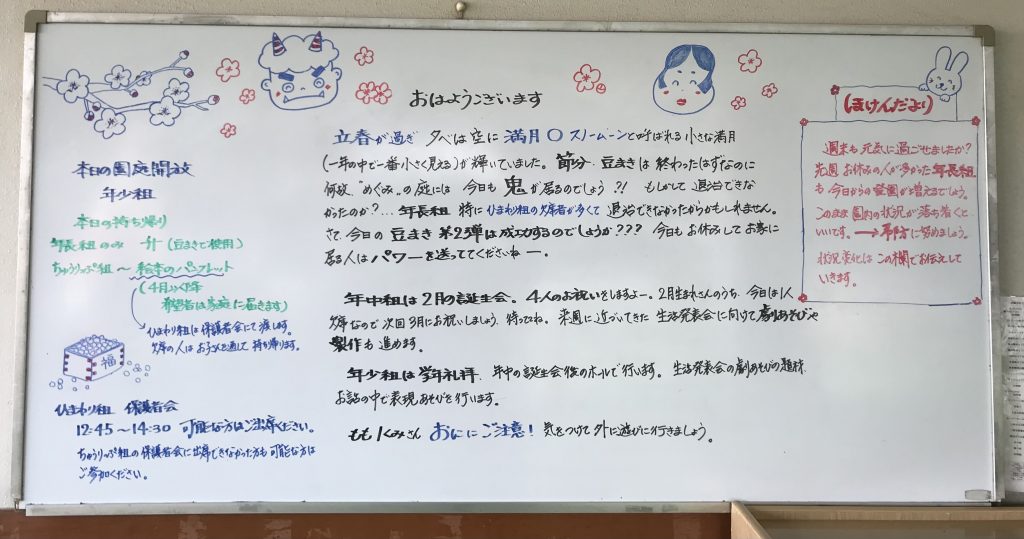 おはようございます
立春が過ぎ 夕べは空に 満月〇 スノームーンと呼ばれる 小さな満月
(一年の中で一番小さく見える)が輝いていました。節分・豆まきは 終わったはずなのに
何故、"めぐみ"の庭には 今日も 鬼が居るのでしょう?!! もしかして 退治できな
かったのか?… 年長組 特に ひまわり組の欠席者が多くて 退治できなかったからかもしれません。
さて、今日の 豆まき 第2弾は成功するのでしょうか??? 今日も お休みして お家に
居る人は パワーを送っててくださいねー。
年中組は 2月の誕生会。4人のお祝いをしますよー。2月生まれさんのうち、今日は1人
欠席なので 次回 3月にお祝いしましょう。待っててね。来週に近づいてきた 生活発表会に向けて 劇あそびや
製作も 進めます。
年少組は 学年礼拝、年中の誕生会後のホールで行います。生活発表会の劇あそびの題材、
お話の中で表現あそびを行います。
もも1くみさん おにに ご注意! 気をつけて 外に遊びに行きましょう。
本日の園庭開放
年少組
本日の持ち帰り
年長組のみ 升 (豆まきで使用)
ちゅうりっぷ組〜 絵本のパンフレット
(4月以降
希望者は家庭に届きます)
ひまわり組は 保護者会にて渡します。
欠席の人は お子さんを通して 持ち帰ります。
福
ひまわり組 保護者会
12:45〜14:30 可能な方はご出席ください。
ちゅうりっぷ組の保護者会に出席できなかった方も 可能な方は
ご参加ください。
ほけんだより
週末も 元気に過ごせましたか?
先週 お休みの人が多かった 年長組
も 今日からの登園が増えるでしょう。
このまま 園内の状況が落ち着くと
いいです。→ 予防に努めましょう。
状況変化は この欄でお伝えして
いきます。